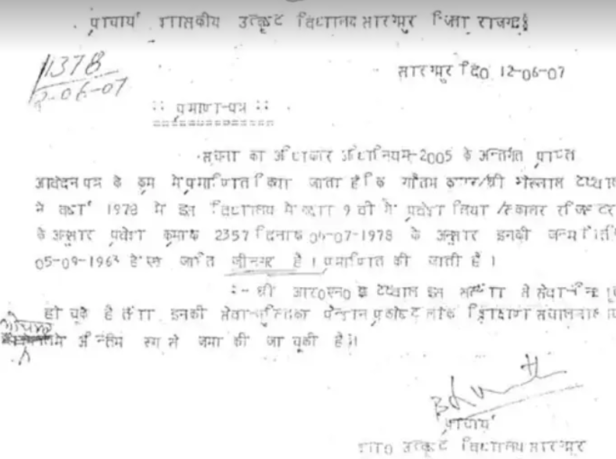 प्राचार्य शासकीय उत्कृष्ट विद्यालय सारंगपुर जिला राजगढ़
1378
12-06-07
सारंगपुर दि0 12-06-07
:: प्रमाण-पत्र ::
सूचना का अधिकार अधिनियम-2005 के अन्तर्गत प्राप्त
आवेदन पत्र के क्रम में प्रमाणित किया जाता है कि गौतम
ने वर्ष 1978 में इस विद्यालय में कक्षा 9 वीं में प्रवेश लिया स्कालर रजिस्टर
के अनुसार प्रवेश क्रमांक 2357 दिनांक 07-1978 के अनुसार इनकी जन्म तिथि
05-09-196 है एवं जाति जीनगर है । प्रमाणित की जाती है ।
:- श्री टेटवाल इस संस्था से सेवा
हो चुके है तथा इनकी सेवा पुस्तिका पेन्शन प्रकोष्ठ लोक शिक्षण संचालनालय
भोपाल में अन्तिम रूप से जमा की जा चुकी है ।
प्राचार्य
शा0 उत्कृष्ट विद्यालय सारंगपुर